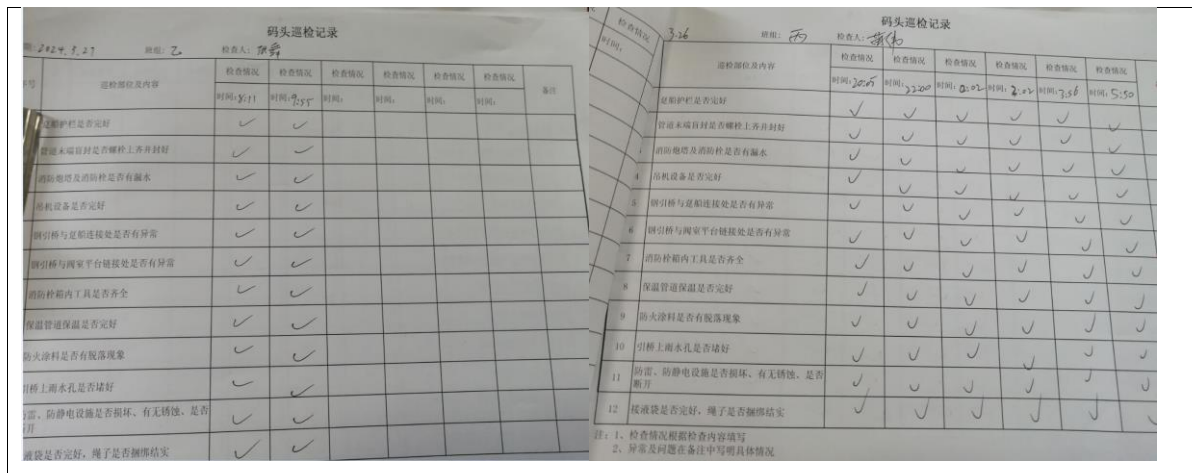 码头巡检记录
2024.3.27 班组: 乙 检查人:
号 巡检部位及内容 检查情况 检查情况 检查情况 检查情况 检查情况 检查情况 备注
时间: 8:11 时间: 9:55 时间: 时间: 时间: 时间:
趸船护栏是否完好 ✓ ✓
管道末端盲封是否螺栓上齐并封好 ✓ ✓
消防炮塔及消防栓是否有漏水 ✓ ✓
吊机设备是否完好 ✓ ✓
钢引桥与趸船连接处是否有异常 ✓ ✓
钢引桥与阀室平台链接处是否有异常 ✓ ✓
消防栓箱内工具是否齐全 ✓ ✓
保温管道保温是否完好 ✓ ✓
防火涂料是否有脱落现象 ✓ ✓
引桥上雨水孔是否堵好 ✓ ✓
防雷、防静电设施是否损坏、有无锈蚀、是否
开 ✓ ✓
接液袋是否完好,绳子是否捆绑结实 ✓ ✓
检查情况
时间:
码头巡检记录
3.26 班组: 丙 检查人:
巡检部位及内容 检查情况 检查情况 检查情况 检查情况 检查情况 检查情况
时间: 20:05 时间: 22:00 时间: 0:02 时间: 2:02 时间: 3:56 时间: 5:50
趸船护栏是否完好 ✓ ✓ ✓ ✓ ✓ ✓
管道末端盲封是否螺栓上齐并封好 ✓ ✓ ✓ ✓ ✓ ✓
消防炮塔及消防栓是否有漏水 ✓ ✓ ✓ ✓ ✓ ✓
4 吊机设备是否完好 ✓ ✓ ✓ ✓ ✓ ✓
5 钢引桥与趸船连接处是否有异常 ✓ ✓ ✓ ✓ ✓ ✓
6 钢引桥与阀室平台链接处是否有异常 ✓ ✓ ✓ ✓ ✓ ✓
7 消防栓箱内工具是否齐全 ✓ ✓ ✓ ✓ ✓ ✓
8 保温管道保温是否完好 ✓ ✓ ✓ ✓ ✓ ✓
9 防火涂料是否有脱落现象 ✓ ✓ ✓ ✓ ✓ ✓
10 引桥上雨水孔是否堵好 ✓ ✓ ✓ ✓ ✓ ✓
11 防雷、防静电设施是否损坏、有无锈蚀、是否
断开 ✓ ✓ ✓ ✓ ✓ ✓
12 接液袋是否完好,绳子是否捆绑结实 ✓ ✓ ✓ ✓ ✓ ✓
注: 1、检查情况根据检查内容填写
2、异常及问题在备注中写明具体情况